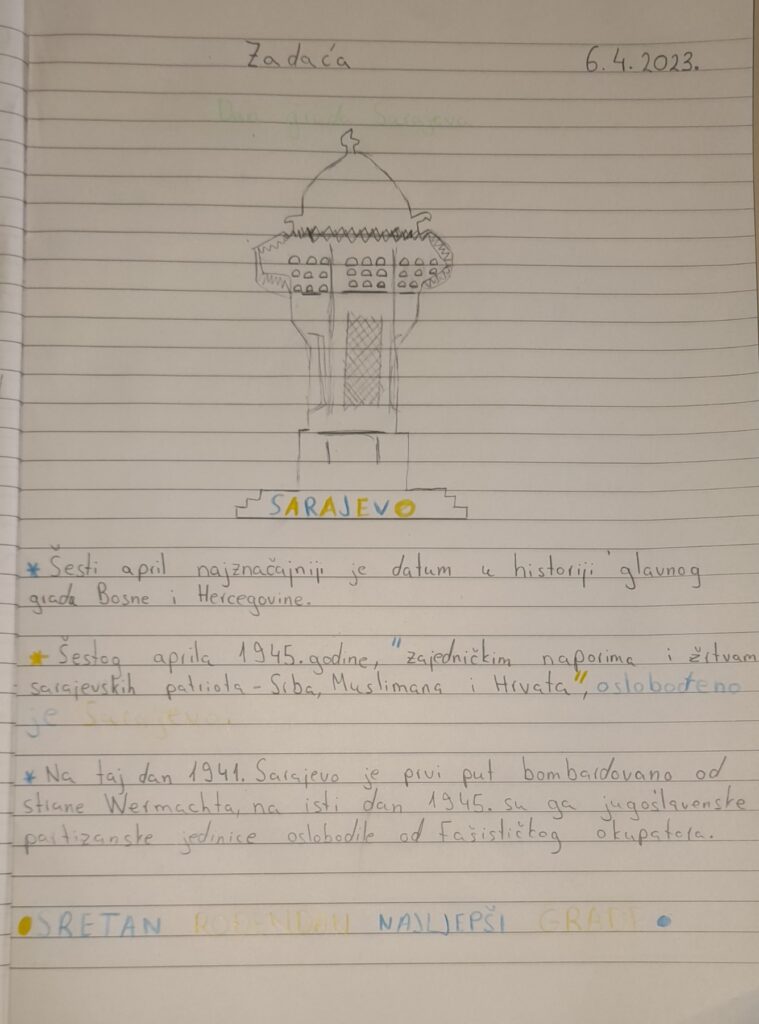 Zadaća 6.4.2023.
Dan grada Sarajeva
SARAJEVO
* Šesti april najznačajniji je datum u historiji glavnog
grada Bosne i Hercegovine.
* Šestog aprila 1945. godine, "zajedničkim naporima i žrtvam
sarajevskih patriota - Srba, Muslimana i Hrvata", oslobođeno
je Sarajevo.
* Na taj dan 1941. Sarajevo je prvi put bombardovano od
strane Wermachta, na isti dan 1945. su ga jugoslavenske
partizanske jedinice oslobodile od fašističkog okupatora.
SRETAN ROĐENDAN NAJLJEPŠI GRADE